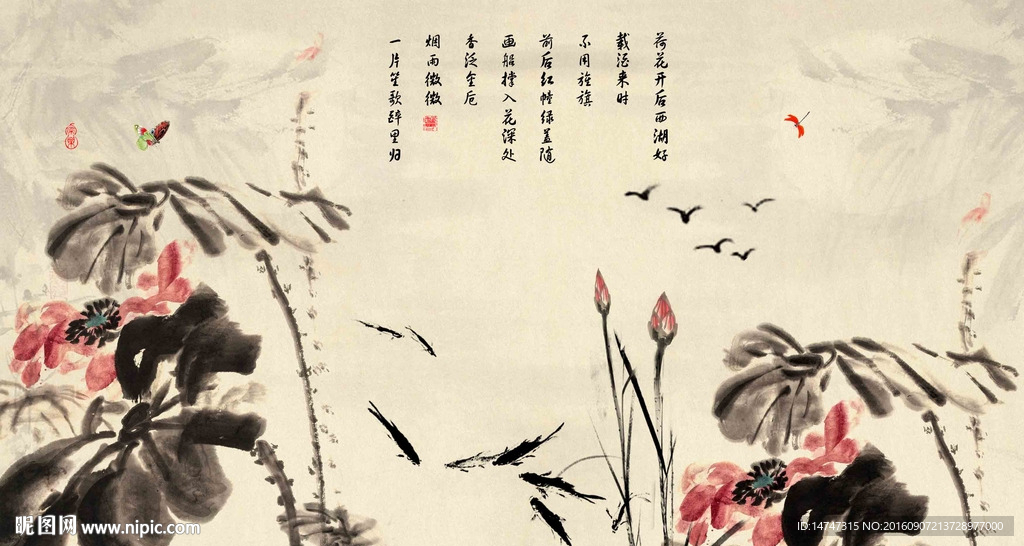 荷花开后西湖好
载酒来时
不用旌旗
前后红幢绿盖随
画船撑入花深处
香泛金卮
烟雨微微
一片笙歌醉里归
昵图网 www.nipic.com
ID:14747315 NO:20160907213728977000